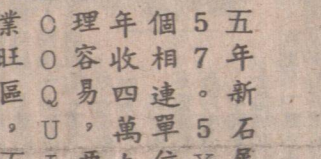 五年新石
57。5
個相連單位
年收四萬
理容易，
COQU
業旺區。